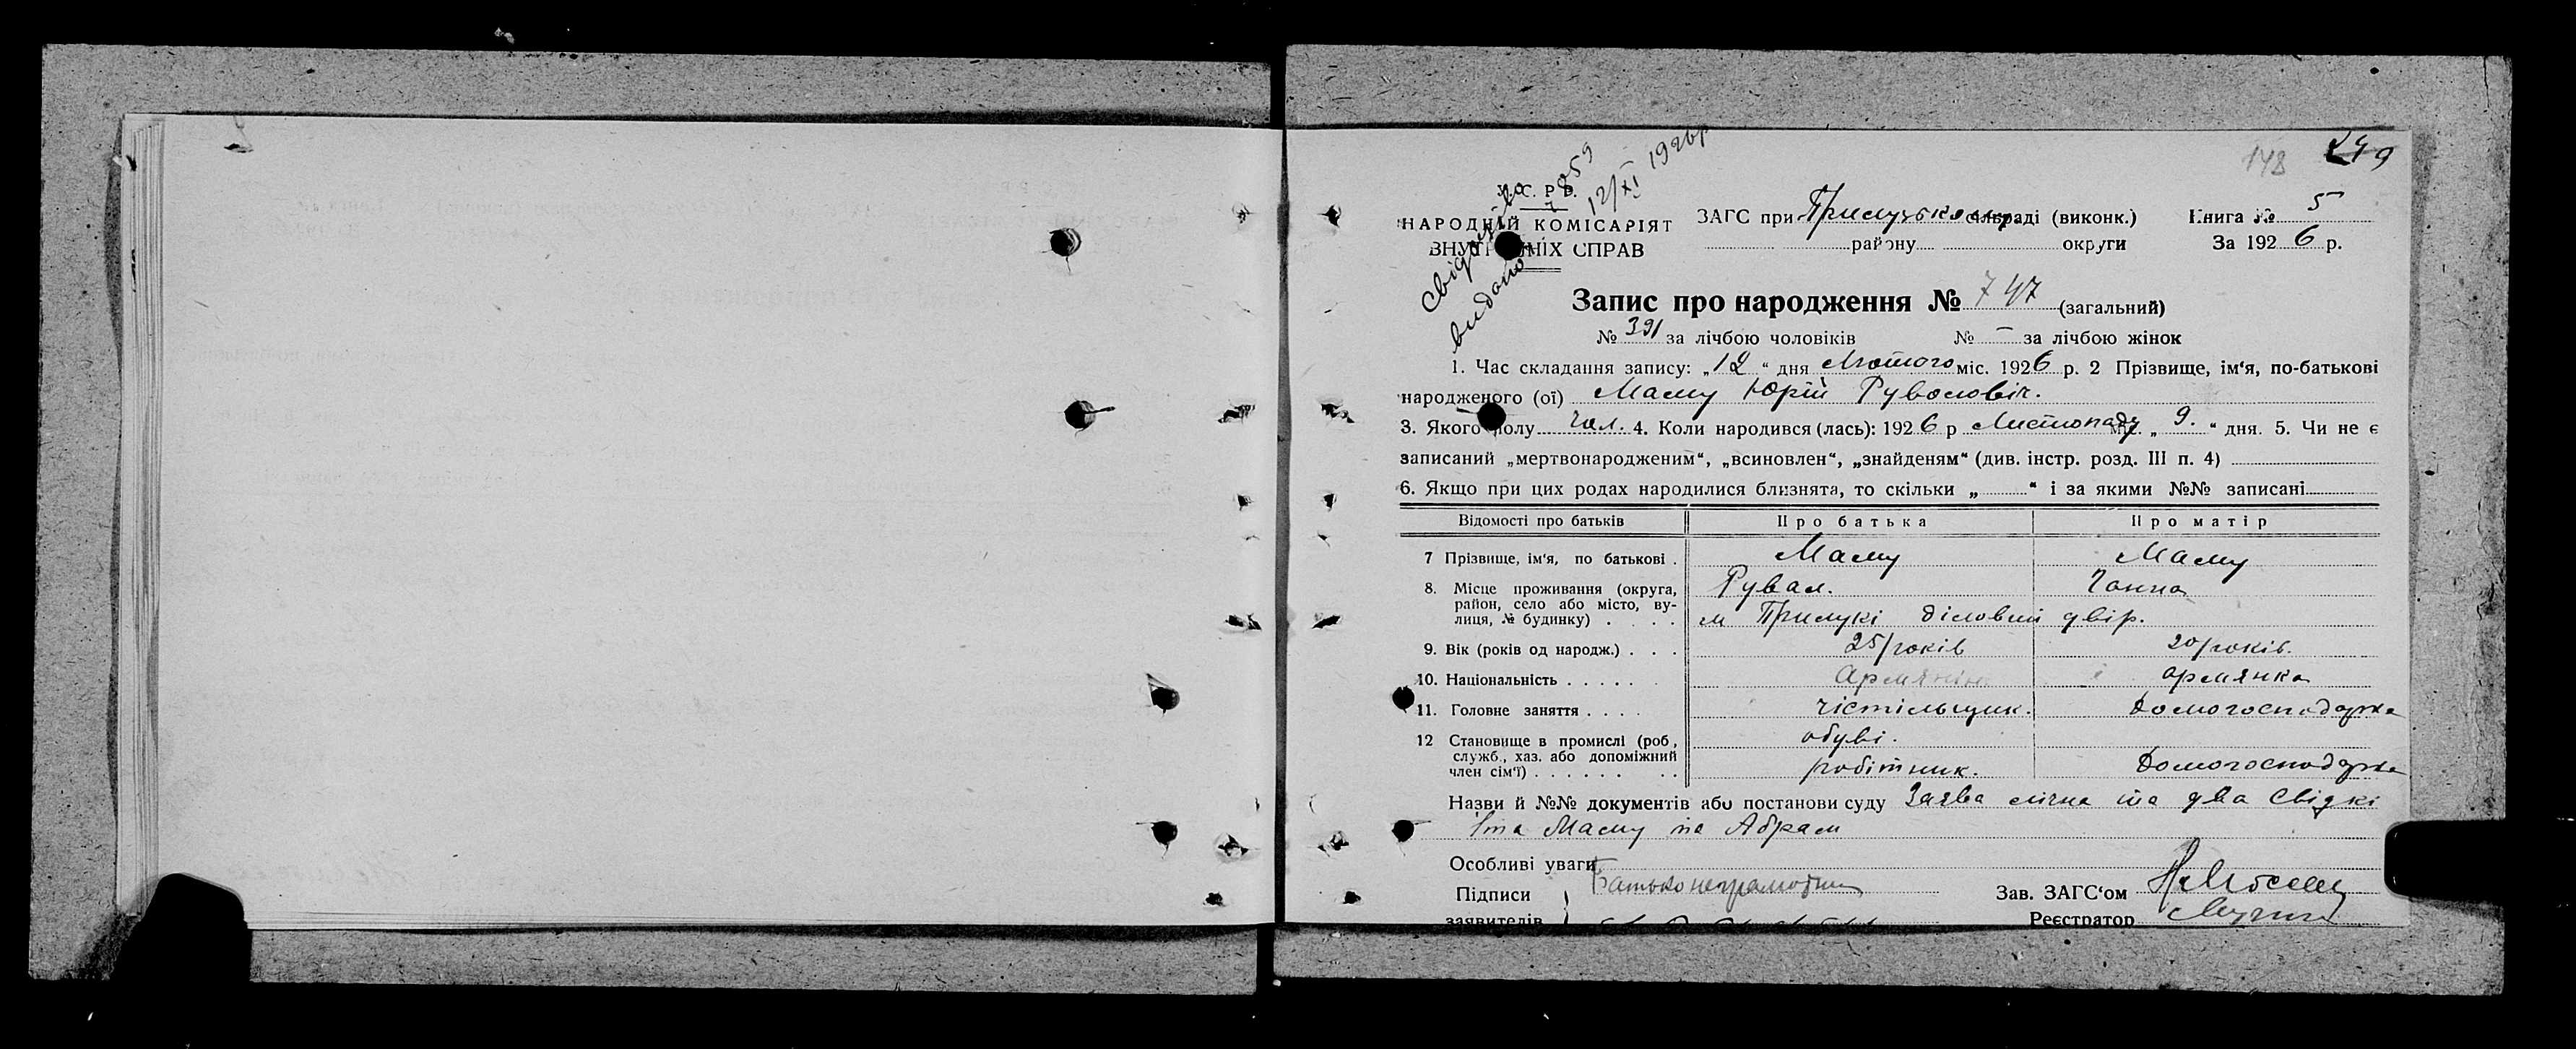 148 249
Свідоцтво
видано
12/XI 1926р
У. С. Р. Р.
НАРОДНІЙ КОМІСАРІЯТ
ВНУТРІШНІХ СПРАВ
ЗАГС при Прилуцькому раді (виконк.) Книга № 5
району округи За 1926 р.
Запис про народження № 747 (загальний)
№ 391 за лічбою чоловіків № — за лічбою жінок
1. Час складання запису: „12“ дня Лютого міс. 1926 р. 2 Прізвище, ім‘я, по-батькові
народженого (ої) Маму Юрій Рувалович.
3. Якого полу Чол. 4. Коли народився (лась): 1926 р Листопаду міс. „9.“ дня. 5. Чи не є
записаний „мертвонародженим“, „всиновлен“, „знайденям“ (див. інстр. розд. III п. 4)
6. Якщо при цих родах народилися близнята, то скільки „ “ і за якими №№ записані
Відомості про батьків Про батька Про матір
7 Прізвище, ім‘я, по батькові . Маму Маму
8. Місце проживання (округа, Рувал. Ганна
район, село або місто, ву-
лиця, № будинку) . . . . м Прилукі діловий двір.
9. Вік (років од народж.) . . . 25/років 20/років.
10. Національність . . . . . Армянин армянка
11. Головне заняття . . . чістільщик. Домогосподарка
12 Становище в промислі (роб, обуві.
служб., хаз. або допоміжний
член сім‘ї) . . . . . . . . робітник. Домогосподарка
Назви й №№ документів або постанови суду Заява лічна та два свідкі
Іта Маму та Абрам
Особливі уваги
Підписи Батько неграмотний Зав. ЗАГС‘ом
заявителів Реєстратор